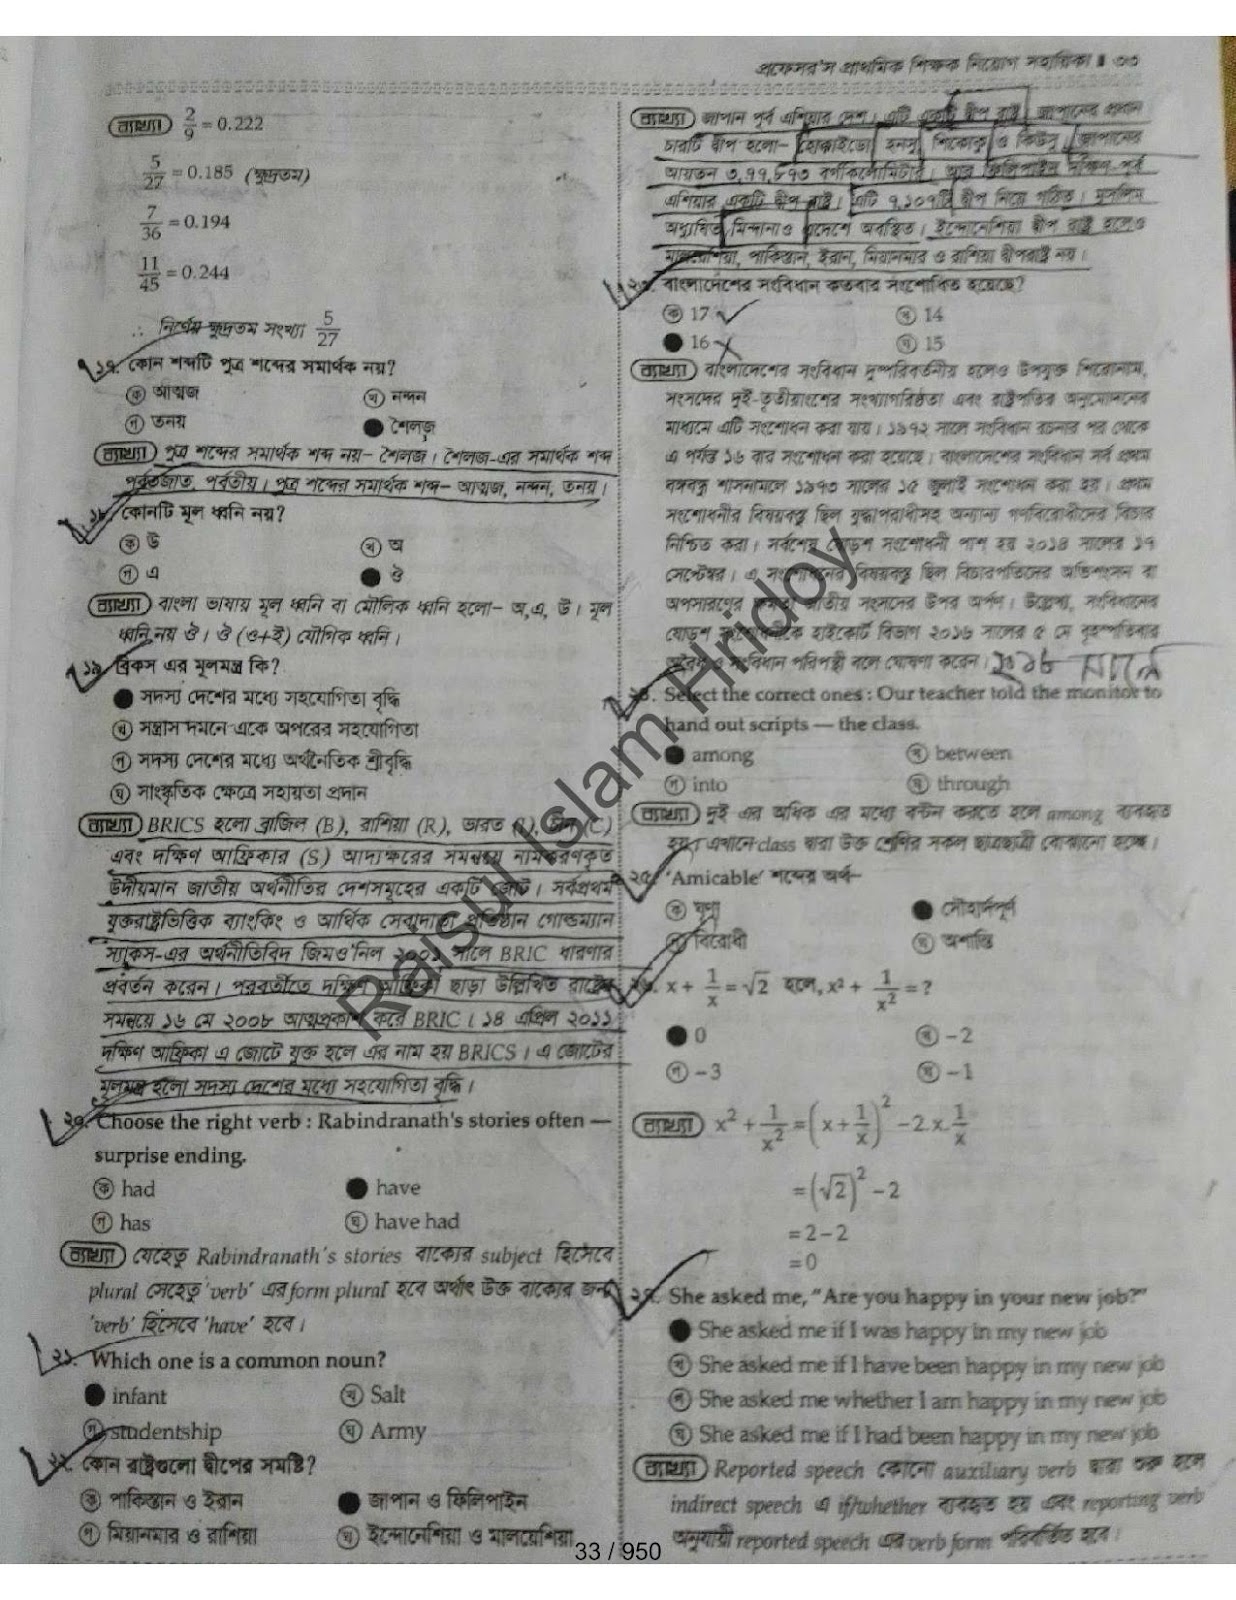 প্রফেসর'স প্রাথমিক শিক্ষক নিয়োগ সহায়িকা ॥ ৩৩
ব্যাখ্যা 2/9 = 0.222
5/27 = 0.185 (ক্ষুদ্রতম)
7/36 = 0.194
11/45 = 0.244
∴ নির্ণেয় ক্ষুদ্রতম সংখ্যা 5/27
১৭. কোন শব্দটি পুত্র শব্দের সমার্থক নয়?
ক আত্মজ খ নন্দন
গ তনয় ● শৈলজ
ব্যাখ্যা পুত্র শব্দের সমার্থক শব্দ নয়– শৈলজ। শৈলজ-এর সমার্থক শব্দ
পর্বতজাত, পর্বতীয়। পুত্র শব্দের সমার্থক শব্দ– আত্মজ, নন্দন, তনয়।
১৮. কোনটি মূল ধ্বনি নয়?
ক উ খ অ
গ এ ● ঔ
ব্যাখ্যা বাংলা ভাষায় মূল ধ্বনি বা মৌলিক ধ্বনি হলো– অ,এ, উ। মূল
ধ্বনি নয় ঔ। ঔ (ও+ই) যৌগিক ধ্বনি।
১৯. ব্রিকস এর মূলমন্ত্র কি?
● সদস্য দেশের মধ্যে সহযোগিতা বৃদ্ধি
খ সন্ত্রাস দমনে একে অপরের সহযোগিতা
গ সদস্য দেশের মধ্যে অর্থনৈতিক শ্রীবৃদ্ধি
ঘ সাংস্কৃতিক ক্ষেত্রে সহায়তা প্রদান
ব্যাখ্যা BRICS হলো ব্রাজিল (B), রাশিয়া (R), ভারত (I), চীন (C)
এবং দক্ষিণ আফ্রিকার (S) আদ্যক্ষরের সমন্বয়ে নামকরণকৃত
উদীয়মান জাতীয় অর্থনীতির দেশসমূহের একটি জোট। সর্বপ্রথম
যুক্তরাষ্ট্রভিত্তিক ব্যাংকিং ও আর্থিক সেবাদাতা প্রতিষ্ঠান গোল্ডম্যান
স্যাকস-এর অর্থনীতিবিদ জিমও'নিল ২০০১ সালে BRIC ধারণার
প্রবর্তন করেন। পরবর্তীতে দক্ষিণ আফ্রিকা ছাড়া উল্লিখিত রাষ্ট্রের
সমন্বয়ে ১৬ মে ২০০৮ আত্মপ্রকাশ করে BRIC। ১৪ এপ্রিল ২০১১
দক্ষিণ আফ্রিকা এ জোটে যুক্ত হলে এর নাম হয় BRICS। এ জোটের
মূলমন্ত্র হলো সদস্য দেশের মধ্যে সহযোগিতা বৃদ্ধি।
২০. Choose the right verb : Rabindranath's stories often —
surprise ending.
ক had ● have
গ has ঘ have had
ব্যাখ্যা যেহেতু Rabindranath's stories বাক্যের subject হিসেবে
plural সেহেতু 'verb' এর form plural হবে অর্থাৎ উক্ত বাক্যের জন্য
'verb' হিসেবে 'have' হবে।
২১. Which one is a common noun?
● infant খ Salt
গ studentship ঘ Army
২২. কোন রাষ্ট্রগুলো দ্বীপের সমষ্টি?
ক পাকিস্তান ও ইরান ● জাপান ও ফিলিপাইন
গ মিয়ানমার ও রাশিয়া ঘ ইন্দোনেশিয়া ও মালয়েশিয়া
ব্যাখ্যা জাপান পূর্ব এশিয়ার দেশ। এটি একটি দ্বীপ রাষ্ট্র। জাপানের প্রধান
চারটি দ্বীপ হলো– হোক্কাইডো হনসু, শিকোকু ও কিউসু। জাপানের
আয়তন ৩,৭৭,৮৭৩ বর্গকিলোমিটার। আর ফিলিপাইন দক্ষিণ-পূর্ব
এশিয়ার একটি দ্বীপ রাষ্ট্র। এটি ৭,১০৭টি দ্বীপ নিয়ে গঠিত। মুসলিম
অধ্যুষিত মিন্দানাও এদেশে অবস্থিত। ইন্দোনেশিয়া দ্বীপ রাষ্ট্র হলেও
মালয়েশিয়া, পাকিস্তান, ইরান, মিয়ানমার ও রাশিয়া দ্বীপরাষ্ট্র নয়।
২৩. বাংলাদেশের সংবিধান কতবার সংশোধিত হয়েছে?
ক 17 খ 14
● 16 ঘ 15
ব্যাখ্যা বাংলাদেশের সংবিধান দুষ্পরিবর্তনীয় হলেও উপযুক্ত শিরোনাম,
সংসদের দুই-তৃতীয়াংশের সংখ্যাগরিষ্ঠতা এবং রাষ্ট্রপতির অনুমোদনের
মাধ্যমে এটি সংশোধন করা যায়। ১৯৭২ সালে সংবিধান রচনার পর থেকে
এ পর্যন্ত ১৬ বার সংশোধন করা হয়েছে। বাংলাদেশের সংবিধান সর্ব প্রথম
বঙ্গবন্ধু শাসনামলে ১৯৭৩ সালের ১৫ জুলাই সংশোধন করা হয়। প্রথম
সংশোধনীর বিষয়বস্তু ছিল যুদ্ধাপরাধীসহ অন্যান্য গণবিরোধীদের বিচার
নিশ্চিত করা। সর্বশেষ ষোড়শ সংশোধনী পাশ হয় ২০১৪ সালের ১৭
সেপ্টেম্বর। এ সংশোধনের বিষয়বস্তু ছিল বিচারপতিদের অভিশংসন বা
অপসারণের ক্ষমতা জাতীয় সংসদের উপর অর্পণ। উল্লেখ্য, সংবিধানের
ষোড়শ সংশোধনীকে হাইকোর্ট বিভাগ ২০১৬ সালের ৫ মে বৃহস্পতিবার
অবৈধ ও সংবিধান পরিপন্থী বলে ঘোষণা করেন। ২০১৮ সালে
২৪. Select the correct ones : Our teacher told the monitor to
hand out scripts — the class.
● among খ between
গ into ঘ through
ব্যাখ্যা দুই এর অধিক এর মধ্যে বন্টন করতে হলে among ব্যবহৃত
হয়। এখানে class দ্বারা উক্ত শ্রেণির সকল ছাত্রছাত্রী বোঝানো হচ্ছে।
২৫. 'Amicable' শব্দের অর্থ–
ক ঘৃণা ● সৌহার্দপূর্ণ
গ বিরোধী ঘ অশান্তি
২৬. x + 1/x = √2 হলে, x² + 1/x² = ?
● 0 খ –2
গ –3 ঘ –1
ব্যাখ্যা x² + 1/x² = (x + 1/x)² – 2.x.1/x
= (√2)² – 2
= 2 – 2
= 0
২৭. She asked me, "Are you happy in your new job?"
● She asked me if I was happy in my new job
খ She asked me if I have been happy in my new job
গ She asked me whether I am happy in my new job
ঘ She asked me if I had been happy in my new job
ব্যাখ্যা Reported speech কোনো auxiliary verb দ্বারা শুরু হলে
indirect speech এ if/whether ব্যবহৃত হয় এবং reporting verb
অনুযায়ী reported speech এর verb form পরিবর্তিত হবে।
Raisul Islam Hridoy
33 / 950